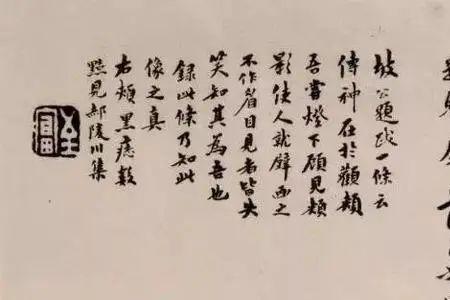 坡公題跋一條云
傳神在於顴頰
吾嘗燈下顧見頰
影使人就壁画之
不作眉目見者皆失
笑知其為吾也
録此條乃知此
像之真
右頰黑痣數
點見郝陵川集